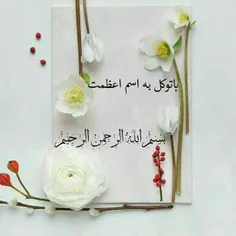 باتوکل به اسم اعظمت
بسم الله الرحمن الرحیم